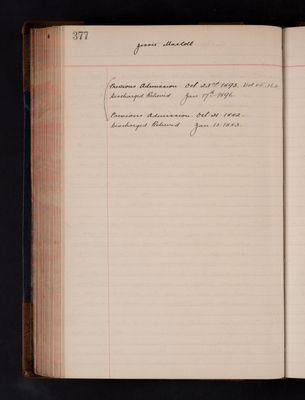 377
Jessie
Previous Admission Oct 23rd 1893. Vol
Discharged Relieved. Jan 17th 1894
Previous Admission Oct 21. 1882.
Discharged Relieved Jan 13. 1883.